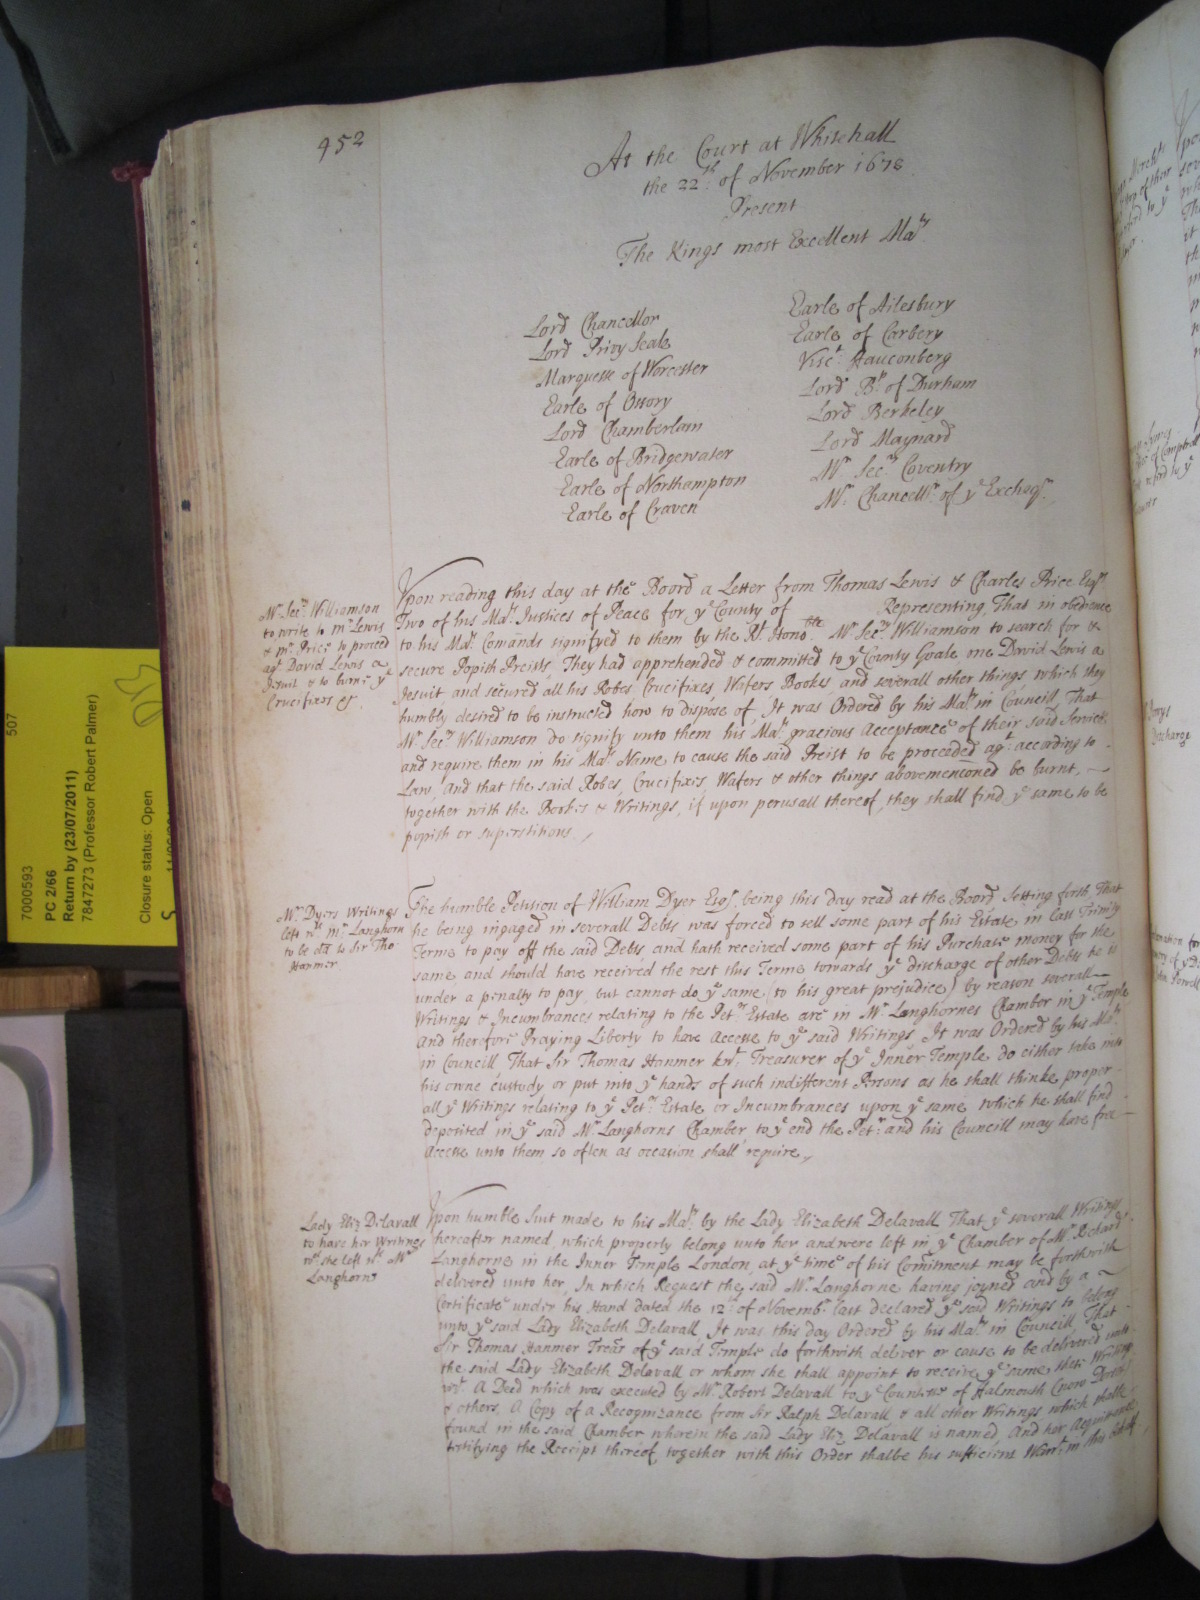 452
At the Court at Whitehall
the 22th of November 1678
Present
The Kings most Excellent Maty
Lord Chancellor
Lord Privy Seale
Marquesse of Worcester
Earle of Ossory
Lord Chamberlain
Earle of Bridgewater
Earle of Northampton
Earle of Craven
Earle of Ailesbury
Earle of Carbery
Visct Fauconberg
Lord Bp of Durham
Lord Berkeley
Lord Maynard
Mr Secry Coventry
Mr Chancellr of ye Excheqr
Mr Secry Williamson
to write to mr Lewis
& mr Price to proceed
agt David Lewis a
Jesuit & to burne ye
Crucifixes &c.
Upon reading this day at the Board a Letter from Thomas Lewis & Charles Price Esqrs
Two of his Maty Justices of Peace for ye County of Representing, That in obedience
to his Maty Comands signifyed to them by the Rt Honoble Mr Secry Williamson to search for &
secure Popish Preists, They had apprehended & committed to ye County Goale one David Lewis a
Jesuit and secured all his Robes Crucifixes, Wafers Bookes, and severall other things which they
humbly desired to be instructed how to dispose of, It was Ordered by his Maty in Councill, That
Mr Secry Williamson do signify unto them his Maty gracious Acceptance of their said Service
and require them in his Maty Name to cause the said Preist to be proceeded agt according to
Law, And that the said Robes, Crucifixes, Wafers & other things abovementioned be burnt,
together with the Bookes & Writings, if upon perusall thereof, they shall find ye same to be
popish or superstitious.
Mr Dyers Writings
left wth Mr Langhorn
to be dd to Sir Tho
Hanmer
The humble Petition of William Dyer Esqr being this day read at the Board Setting forth That
he being ingaged in severall Debts was forced to sell some part of his Estate in last Trinity
Terme to pay off the said Debts, and hath received some part of his Purchase money for the
same, and should have received the rest this Terme towards ye discharge of other Debts he is
under a penalty to pay, but cannot do ye same (to his great prejudice) by reason severall
Writings & Incumbrances relating to the Petrs Estate are in Mr Langhornes Chamber in ye Temple
And therefore Praying Liberty to have Accesse to ye said Writings, It was Ordered by his Maty
in Councill, That Sir Thomas Hanmer knt Treasurer of ye Inner Temple do either take into
his owne custody or put into ye hands of such indifferent Persons as he shall thinke proper
all ye Writings relating to ye Petrs Estate or Incumbrances upon ye same which he shall find
deposited in ye said Mr Langhorns Chamber, to ye end the Petr and his Councill may have free
Accesse unto them so often as occasion shall require,
Lady Eliz Delavall
to have her Writings
wch she left wth Mr
Langhorne
Upon humble Suit made to his Maty by the Lady Elizabeth Delavall That ye severall Writings
hereafter named, which properly belong unto her and were left in ye Chamber of Mr Richard
Langhorne in the Inner Temple London, at ye time of his Comitment may be forthwith
delivered unto her, In which Request the said Mr Langhorne having joyned and by a
Certificate under his Hand dated the 12th of Novembr last declared ye said Writings to belong
unto ye said Lady Elizabeth Delavall, It was this day Ordered by his Maty in Councill, That
Sir Thomas Hanmer Trear of ye said Temple do forthwith deliver or cause to be delivered unto
the said Lady Elizabeth Delavall or whom she shall appoint to receive ye same these Writings
vizt A Deed which was executed by Mr Robert Delavall to ye Countesse of Falmouth (now Dorset)
& others, A Copy of a Recognizance from Sir Ralph Delavall, & all other Writings which shall be
found in the said Chamber wherein the said Lady Eliz Delavall is named, And her Acquittance
testifying the Receipt thereof, together with this Order shalbe his sufficient Warrt in this behalf
507
7000593
PC 2/66
Return by (23/07/2011)
7847273 (Professor Robert Palmer)
Closure status: Open